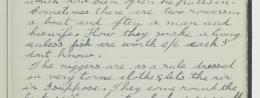 Sometimes there are two rowers in
a boat and often a man and
his wife. How they make a living
unless fish are worth 5/6 each I
dont know.
The niggers are as a rule dressed
in very torn clothes, lets the air
in I suppose. They come round the